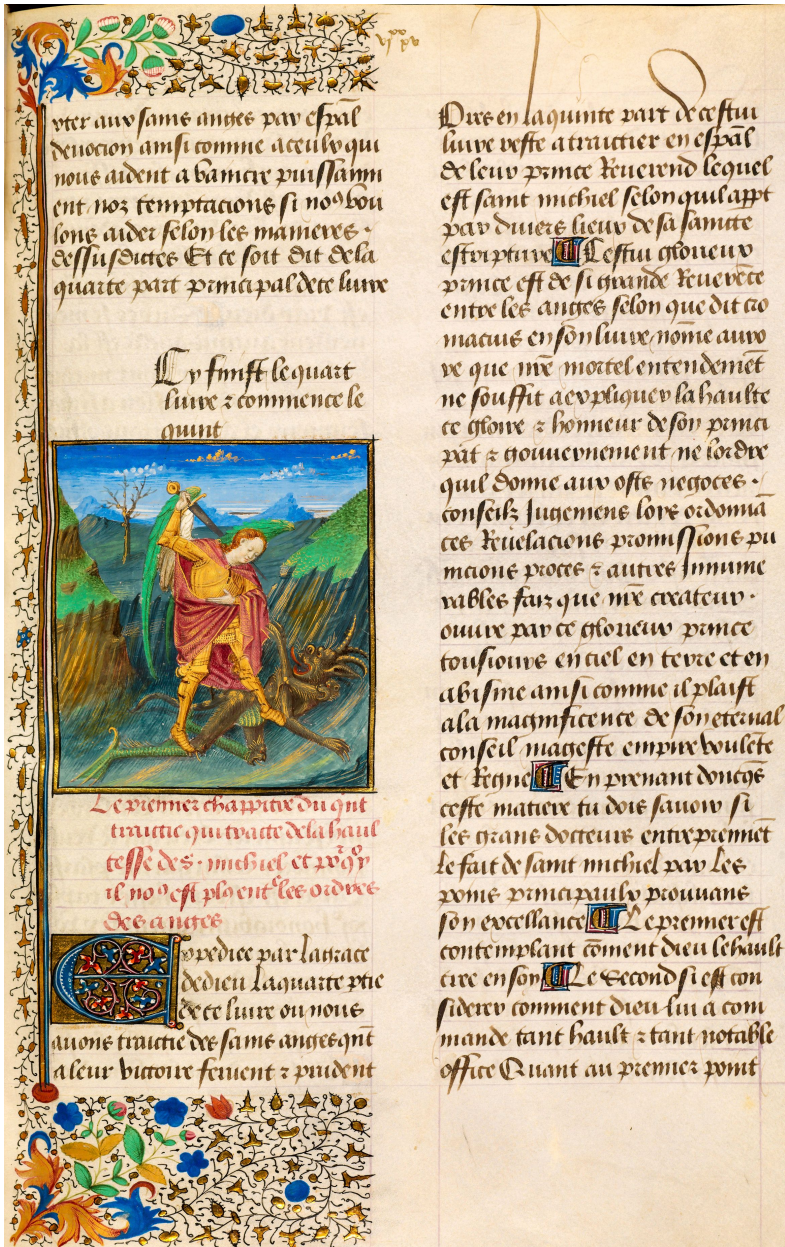 rter aux sains anges par espāl
devocion ainsi comme a ceulx qui
nous aident a vaincre puissamm
ent noz temptacions si noꝰ vou
lons aider selon les manieres ·
dessusdictes Et ce soit dit de la
quarte part principal de ce livre
Cy finist le quart
livre ⁊ commence le
quint
Le premier chappitre du qnt
traictie qui traicte de la haul
tesse de s · michiel et
il noꝰ est les ordres
des anges
Expedice par la grace
de dieu la quarte ptie
de ce livre ou nous
avons traictie des sains anges qnt
a leur victoire fervent ⁊ prudent
Ores en la quinte part de cestui
livre reste a traictier en espāl
de leur prince Reverend lequel
est saint michiel selon quil appt
par divers lieux de sa saincte
escripture Cestui glorieux
prince est de si grande Reverēce
entre les anges selon que dit cro
macius en son livre nōme auro
re que nr̄e mortel entendemēt
ne souffit a expliquer la haulte
ce gloire ⁊ honneur de son princi
pat ⁊ gouvernement ne lordre
quil donne aux osts negoces ·
conseilz Jugemens lors ordonnā
ces Revelacions promissions pu
nicions proces ⁊ autres Innume
rables faiz que nr̄e createur ·
ouvre par ce glorieux prince
tousiours en ciel en terre et en
abisme ainsi comme il plaist
a la magnificence de son eternal
conseil mageste empire voulēte
et Regne En prenant doncqs
ceste matiere tu dois savoir si
les grans docteurs entreprennēt
le fait de saint michiel par les
poins principaulx prouvans
son excellance Le premier est
contemplant cōment dieu le hault
cree en son Le Second si est con
siderer comment dieu lui a com
mande tant hault ⁊ tant notable
office Quant au premier point